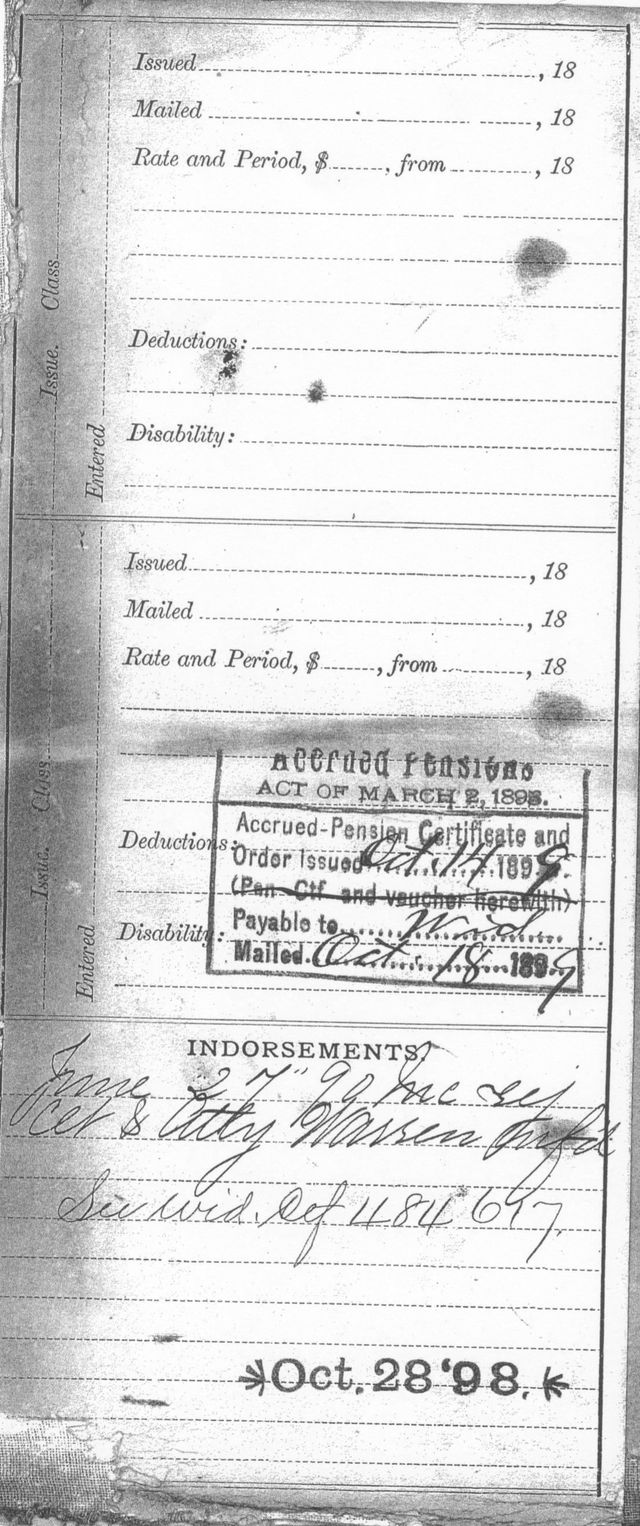 Issued , 18
Mailed , 18
Rate and Period, $ , from , 18
Class
Issue.
Deductions:
Disability:
Entered
Issued , 18
Mailed , 18
Rate and Period, $ , from , 18
Class
Issue.
Accrued Pensions
ACT OF MARCH 2, 1895.
Accrued-Pension Certificate and
Deductions:
Order issued Oct. 14 1899.
(Pen Ctf and voucher herewith)
Payable to Wid.
Disability:
Mailed Oct. 18 1899
Entered
INDORSEMENTS.
June 27" 90 Inc rej
& Atty Warren Infd
See wid. Cef 484 697.
Oct. 28 '98.